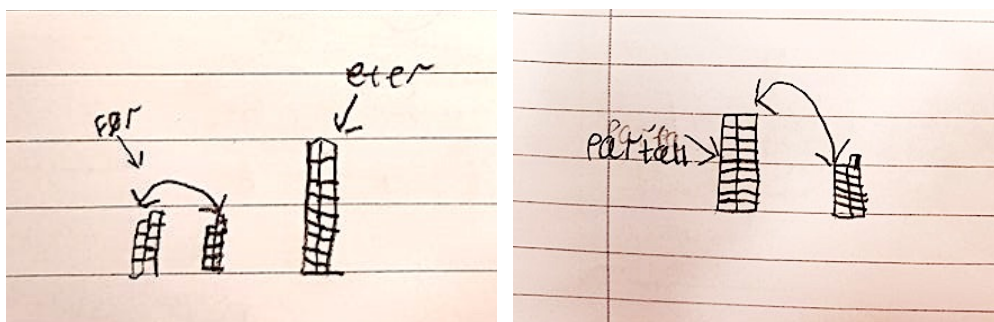 før
eter
partall